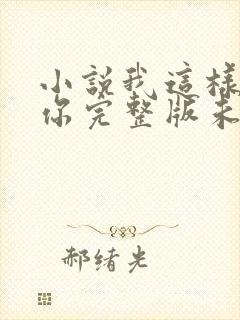 小説我這樣
你完整版未
郝绪光